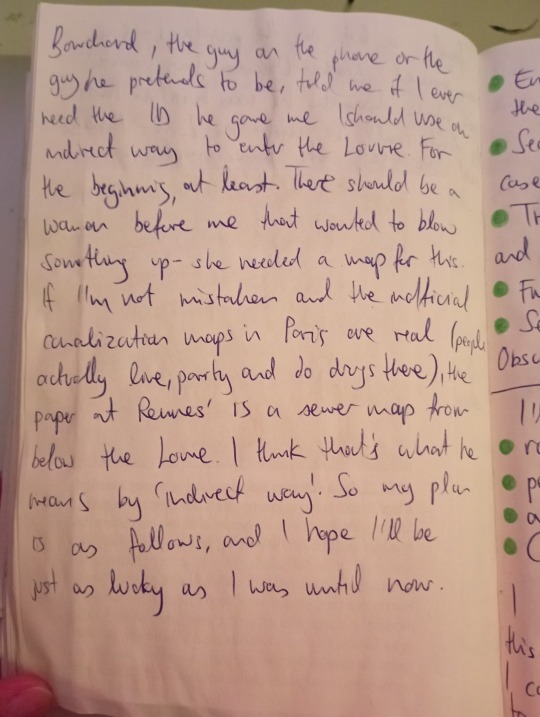 Bouchard, the guy on the phone or the
guy he pretends to be, told me if I ever
need the ID he gave me I should use an
indirect way to enter the Louvre. For
the beginning, at least. There should be a
woman before me that wanted to blow
something up - she needed a map for this.
If I'm not mistaken and the inofficial
canalization maps in Paris are real (people
actually live, party and do drugs there), the
paper at Rennes' is a sewer map from
below the Louvre. I think that's what he
means by 'indirect way'. So my plan
is as follows, and I hope I'll be
just as lucky as I was until now.
the
case
and
Obsc
this
I